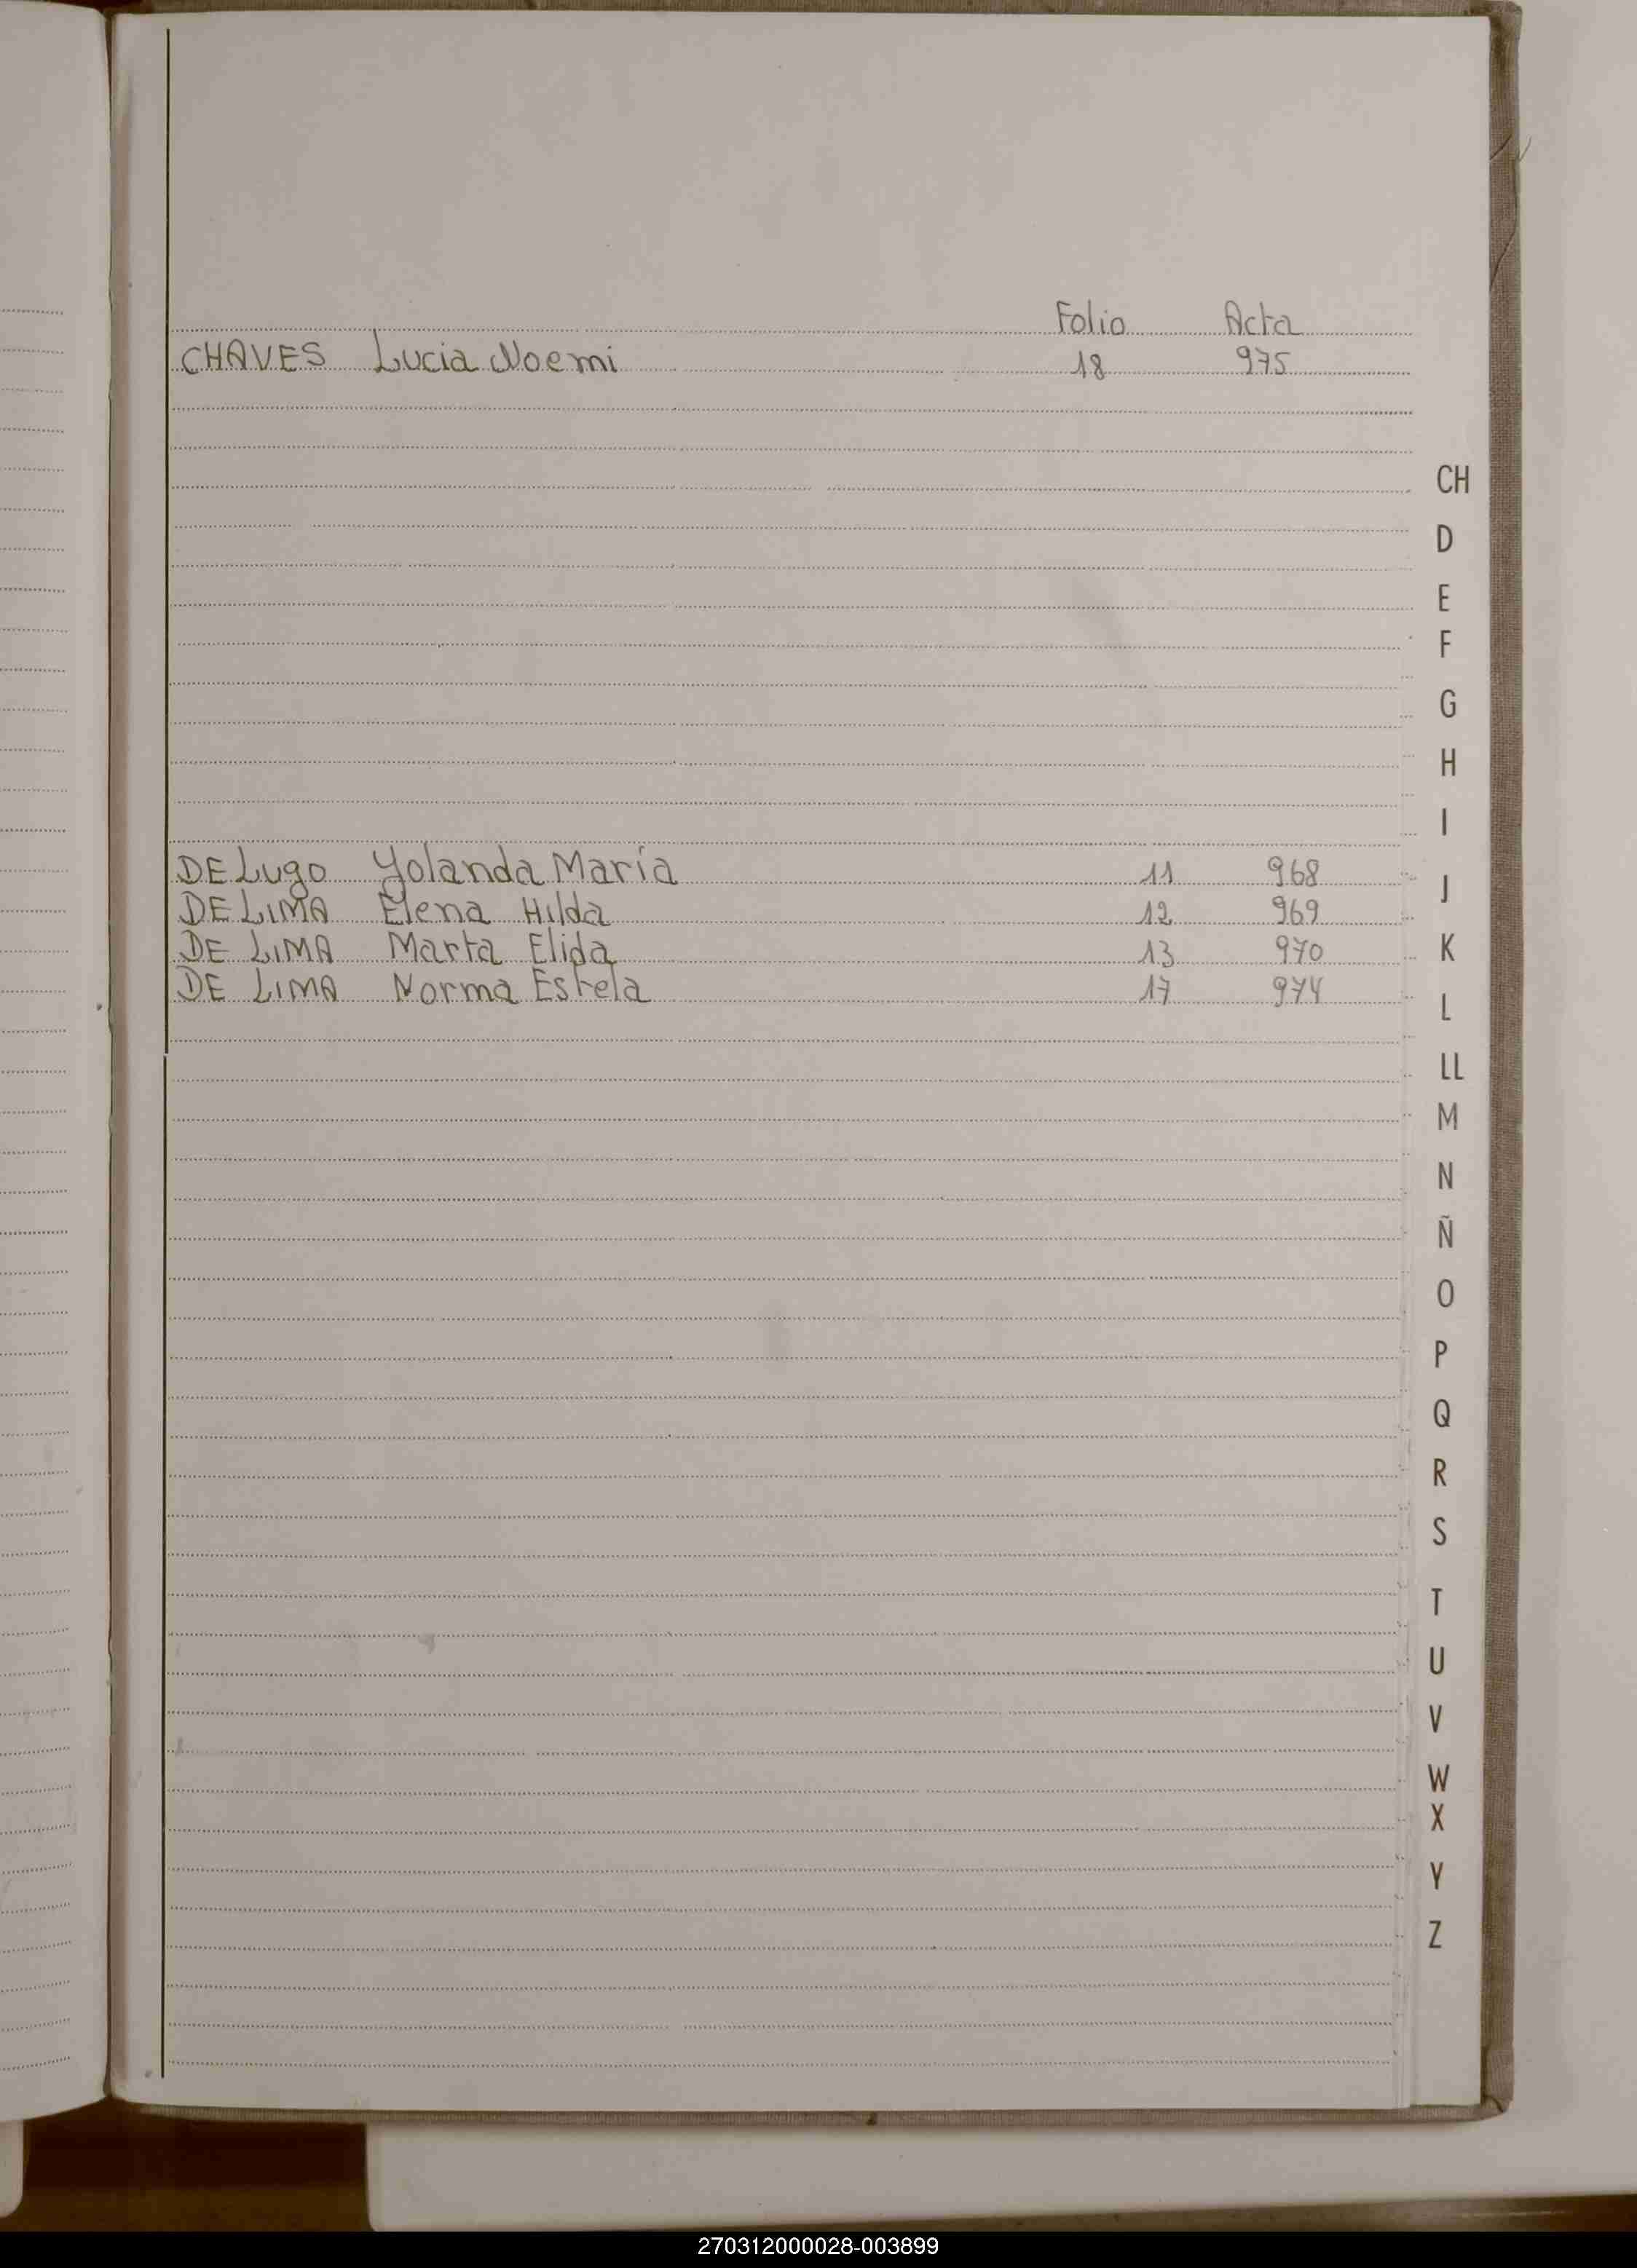 Folio Acta
CHAVES Lucia Noemi 18 975
CH
D
E
F
G
H
I
DE Lugo Yolanda María 11 968
J
DE LIMA Elena Hilda 12 969
DE LIMA Marta Elida 13 970
K
DE LIMA Norma Estela 17 974
L
LL
M
N
Ñ
O
P
Q
R
S
T
U
V
W
X
Y
Z
270312000028-003899